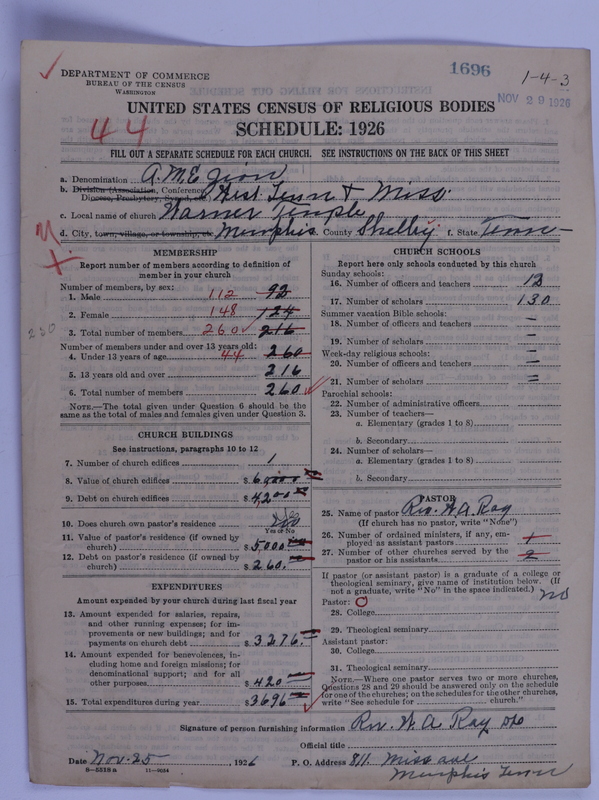 1696
1-4-3
NOV 29 1926
DEPARTMENT OF COMMERCE
BUREAU OF THE CENSUS
WASHINGTON
UNITED STATES CENSUS OF RELIGIOUS BODIES
44
SCHEDULE: 1926
FILL OUT A SEPARATE SCHEDULE FOR EACH CHURCH. SEE INSTRUCTIONS ON THE BACK OF THIS SHEET
a. Denomination A.M.E Zion
b. Division (Association, Conference, West Tenn & Miss.
Diocese, Presbytery, Synod, etc.)
c. Local name of church Warner Temple
d. City, town, village, or township, etc. Memphis County Shelby f. State Tenn-
MEMBERSHIP
Report number of members according to definition of
member in your church
Number of members, by sex:
1. Male 112 92
2. Female 148 124
3. Total number of members 260 216
230
Number of members under and over 13 years old:
4. Under 13 years of age 44 260
5. 13 years old and over 216
6. Total number of members 260
NOTE.—The total given under Question 6 should be the
same as the total of males and females given under Question 3.
CHURCH BUILDINGS
See instructions, paragraphs 10 to 12
7. Number of church edifices 1
8. Value of church edifices $
9. Debt on church edifices $ 4,200
10. Does church own pastor's residence
Yes or No
11. Value of pastor's residence (if owned by
church) $ 5000
12. Debt on pastor's residence (if owned by
church) $ 260.
EXPENDITURES
Amount expended by your church during last fiscal year
13. Amount expended for salaries, repairs,
and other running expenses; for im-
provements or new buildings; and for
payments on church debt $ 3276.
14. Amount expended for benevolences, in-
cluding home and foreign missions; for
denominational support; and for all
other purposes $ 420
15. Total expenditures during year $ 3696
CHURCH SCHOOLS
Report here only schools conducted by this church
Sunday schools:
16. Number of officers and teachers 12
17. Number of scholars 130
Summer vacation Bible schools:
18. Number of officers and teachers —
19. Number of scholars —
Week-day religious schools: —
20. Number of officers and teachers —
21. Number of scholars =
Parochial schools:
22. Number of administrative officers
23. Number of teachers—
a. Elementary (grades 1 to 8)
b. Secondary
24. Number of scholars—
a. Elementary (grades 1 to 8)
b. Secondary
PASTOR
25. Name of pastor Rev. W. A. Ray
(If church has no pastor, write "None")
26. Number of ordained ministers, if any, em-
ployed as assistant pastors 1
27. Number of other churches served by the
pastor or his assistants 2
If pastor (or assistant pastor) is a graduate of a college or
theological seminary, give name of institution below. (If
not a graduate, write "No" in the space indicated.) no
Pastor: O
28. College
29. Theological seminary
Assistant pastor:
30. College
31. Theological seminary
NOTE.—Where one pastor serves two or more churches,
Questions 28 and 29 should be answered only on the schedule
for one of the churches; on the schedules for the other churches,
write "See schedule for church."
Signature of person furnishing information Rev. W. A. Ray
Official title
Date Nov. 25, 1926 P. O. Address 811 Miss ave
8—5519a 11—9034 Memphis Tenn